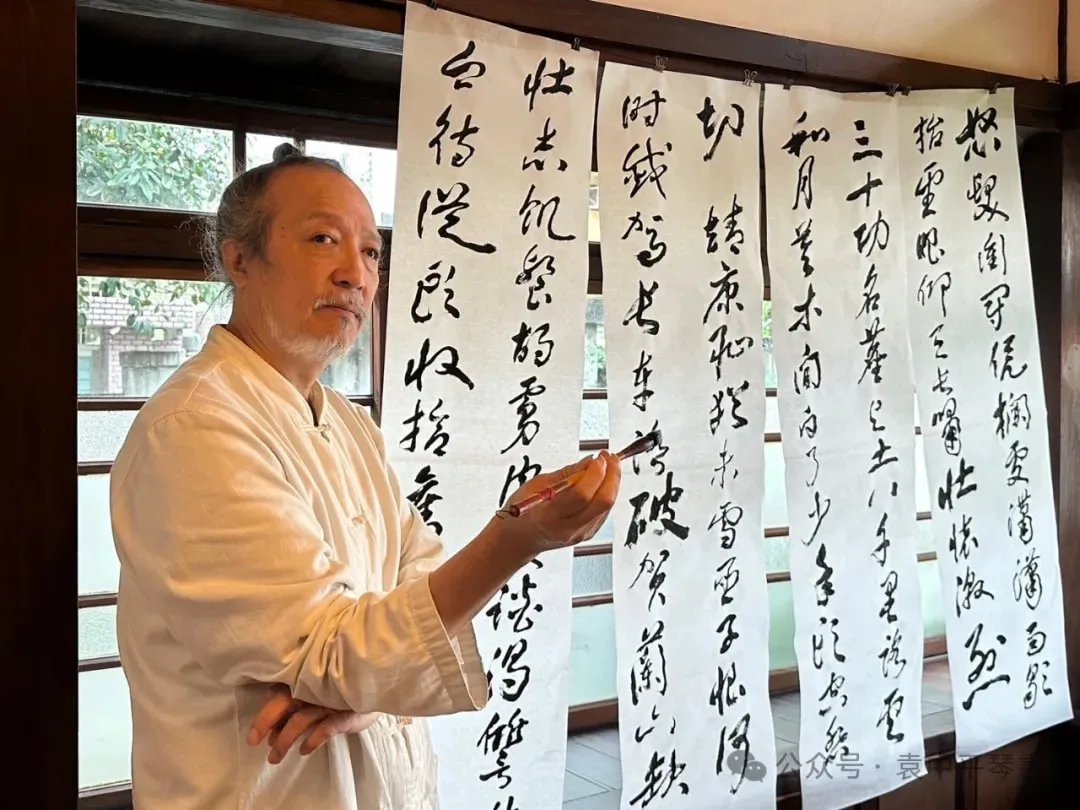 怒髮衝冠凭欄處瀟瀟雨歇
抬望眼仰天長嘯壯懷激烈
三十功名塵與土八千里路雲
和月莫等閒白了少年頭空悲
切 靖康恥猶未雪臣子恨何
時滅駕長車踏破賀蘭山缺
壯志飢餐胡虜肉談渴
血待從頭收拾舊
公众号 · 袁中平琴